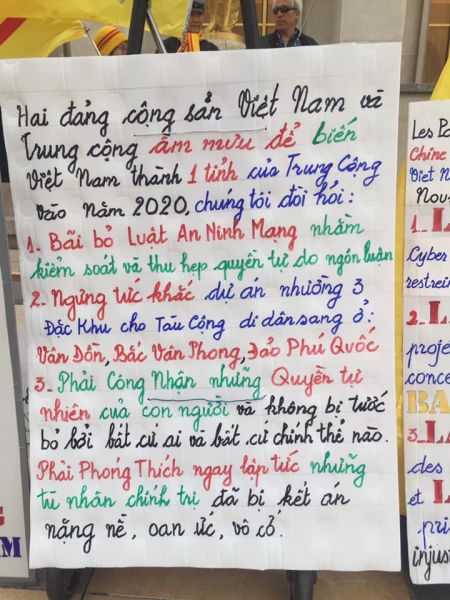 Hai đảng cộng sản Việt Nam và
Trung cộng âm mưu để biến
Việt Nam thành 1 tỉnh của Trung Cộng
vào năm 2020, chúng tôi đòi hỏi :
1. Bãi bỏ Luật An Ninh Mạng nhằm
kiểm soát và thu hẹp quyền tự do ngôn luận
2. Ngừng tức khắc dự án nhường 3
Đặc Khu cho Tàu Cộng di dân sang ở :
Vân Đồn, Bắc Vân Phong, Đảo Phú Quốc
3. Phải Công Nhận những Quyền tự
nhiên của con người và không bị tước
bỏ bởi bất cứ ai và bất cứ chính thể nào.
Phải Phóng Thích ngay lập tức những
tù nhân chính trị đã bị kết án
nặng nề, oan ức, vô cớ.
Les Pa
Chine
Viet N
Nou
1. L
Cyber
restrein
2. L
proje
conce
BA
3. L
des
et L
pri
injus
M